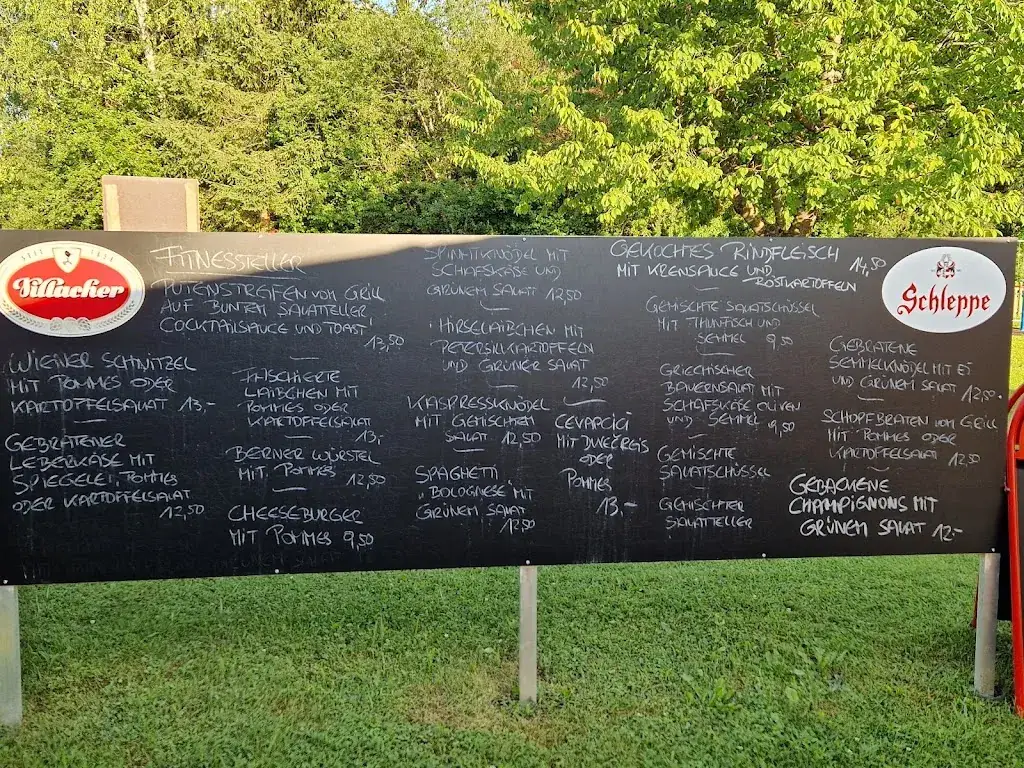 SEIT 1858
Villacher
WIENER SCHNITZEL
MIT POMMES ODER
KARTOFFELSALAT 13,-
GEBRATENER
LEBERKÄSE MIT
SPIEGELEI, POMMES
ODER KARTOFFELSALAT
12,50
FITNESSTELLER
PUTENSTREIFEN VOM GRILL
AUF BUNTEM SALATTELLER
COCKTAILSAUCE UND TOAST
13,50
FASCHIERTE
LAIBCHEN MIT
POMMES ODER
KARTOFFELSALAT
13,-
BERNER WÜRSTEL
MIT POMMES 12,50
CHEESEBURGER
MIT POMMES 9,50
SPINATKNÖDEL MIT
SCHAFSKÄSE UND
GRÜNEM SALAT 12,50
HIRSELAIBCHEN MIT
PETERSILKARTOFFELN
UND GRÜNER SALAT
12,50
KASPRESSKNÖDEL
MIT GEMISCHTEM
SALAT 12,50
SPAGHETTI
"BOLOGNESE" MIT
GRÜNEM SALAT
12,50
CEVAPCICI
MIT DUVEČREIS
ODER
POMMES
13,-
GEKOCHTES RINDFLEISCH
MIT KRENSAUCE UND 14,50
RÖSTKARTOFFELN
GEMISCHTE SALATSCHÜSSEL
MIT THUNFISCH UND
SEMMEL 9,50
GRIECHISCHER
BAUERNSALAT MIT
SCHAFSKÄSE OLIVEN
UND SEMMEL 9,50
GEMISCHTE
SALATSCHÜSSEL
GEMISCHTER
SALATTELLER
Schleppe
GEBRATENE
SEMMELKNÖDEL MIT EI
UND GRÜNEM SALAT 12,50
SCHOPFBRATEN VOM GRILL
MIT POMMES ODER
KARTOFFELSALAT 12,50
GEBACKENE
CHAMPIGNONS MIT
GRÜNEM SALAT 12-